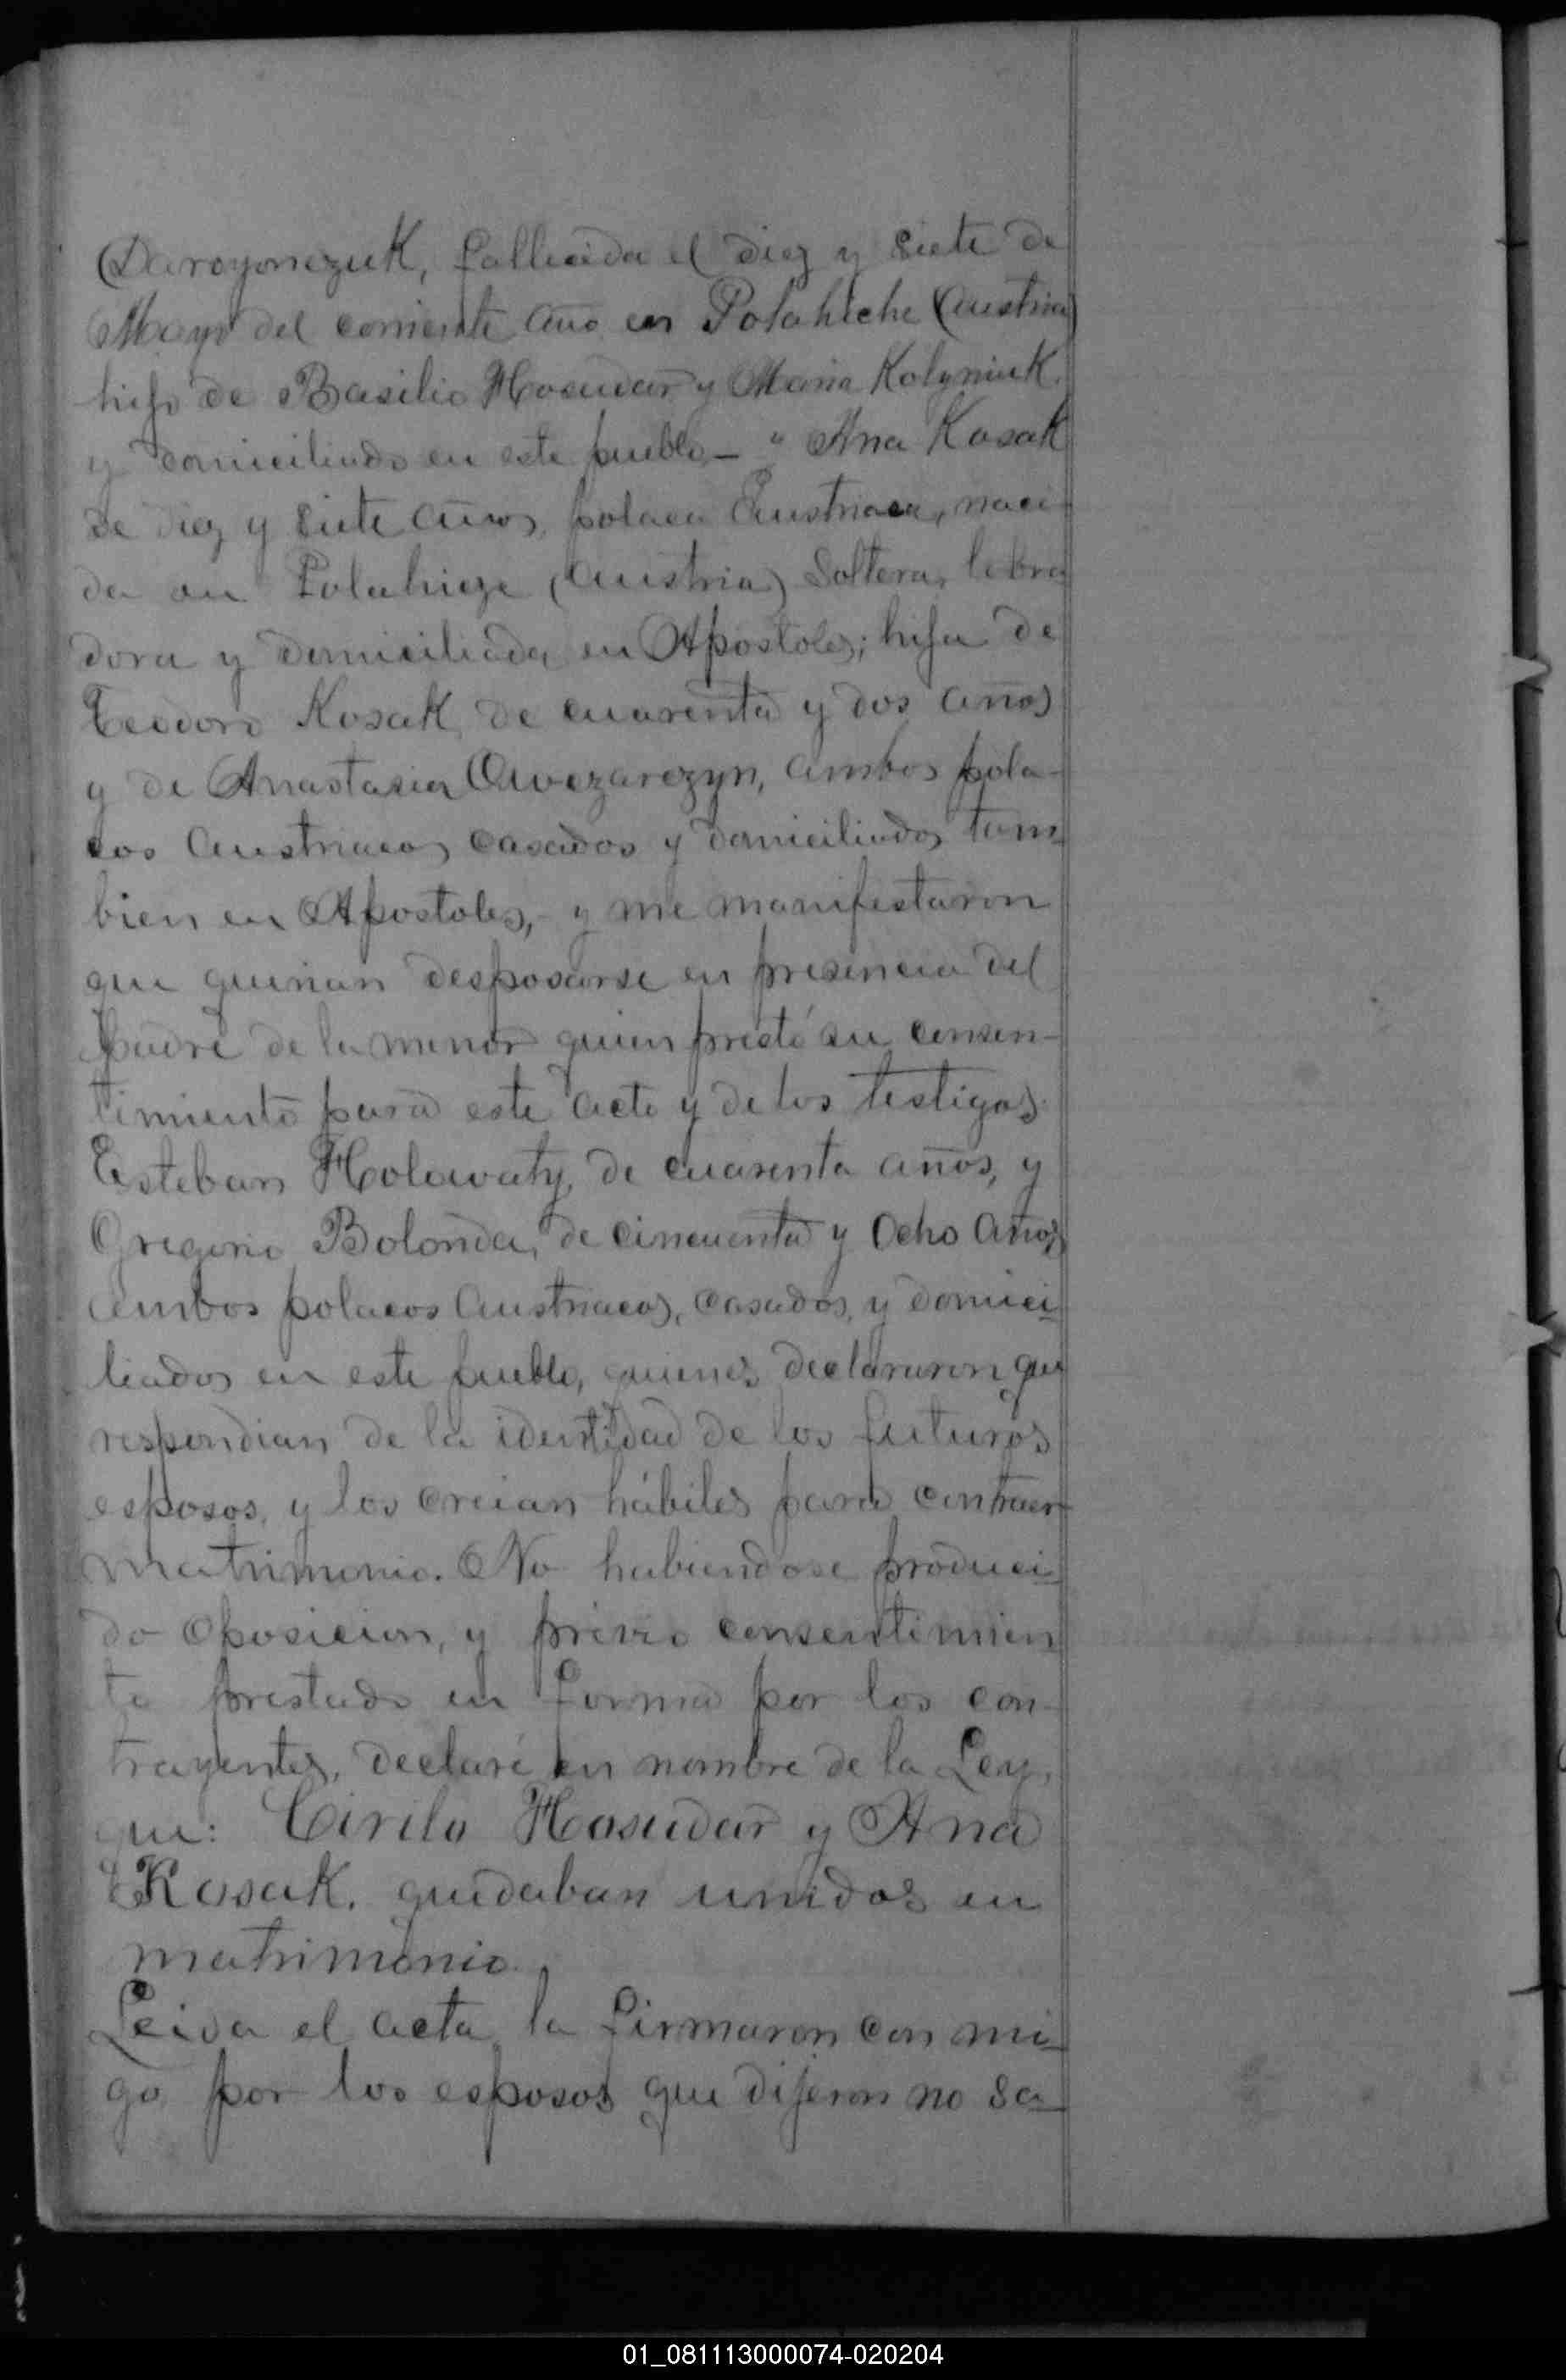 Daroyonezuk, fallecida el diez y siete de
Mayo del corriente año en Polahiche (Austria)
hijo de Basilio Hosudar y Maria Kolyniuk
y domiciliado en este pueblo – y Ana Kosak
de diez y siete años, polaca Austriaca, naci-
da en Polahicze (Austria) Soltera, labra
dora y domiciliada en Apostoles; hija de
Teodoro Kosak, de cuarenta y dos años
y de Anastasia Owczarczyn, ambos pola-
cos Austriacos casados y domiciliados tam-
bien en Apostoles, y me manifestaron
que querian desposarse en presencia del
padre de la menor quien prestó su consen-
timiento para este acto y de los testigos
Esteban Holowaty, de cuarenta años, y
Gregorio Bolonda, de cincuenta y Ocho años
ambos polacos Austriacos, casados, y domici-
liados en este pueblo, quienes declararon que
respondian de la identidad de los futuros
esposos, y los creian hábiles para contraer
matrimonio. No habiendose produci-
do oposicion, y prévio consentimien
to prestado en forma por los con-
trayentes, declaré en nombre de la Ley,
que: Cirilo Hosudar y Ana
Kosak. quedaban unidos en
matrimonio.
Leida el acta, la firmaron con mi-
go, por los esposos que dijeron no sa-
01_081113000074-020204